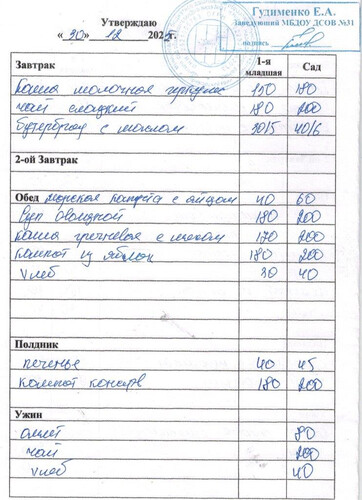 Гудименко Е.А.
Заведующий МБДОУ ДСОВ №31
подпись
Утверждаю
«30» 12 202
Завтрак 1-я младшая Сад
Каша молочная геркулес 150 180
чай сладкий 180 200
бутерброд с маслом 30/5 40/6
2-ой Завтрак
Обед морская капуста с яйцом 40 60
Суп овощной 180 200
каша гречневая с мясом 170 200
компот из яблок 180 200
хлеб 30 40
Полдник
печенье 40 45
компот консерв 180 200
Ужин
омлет 80
чай 200
хлеб 40